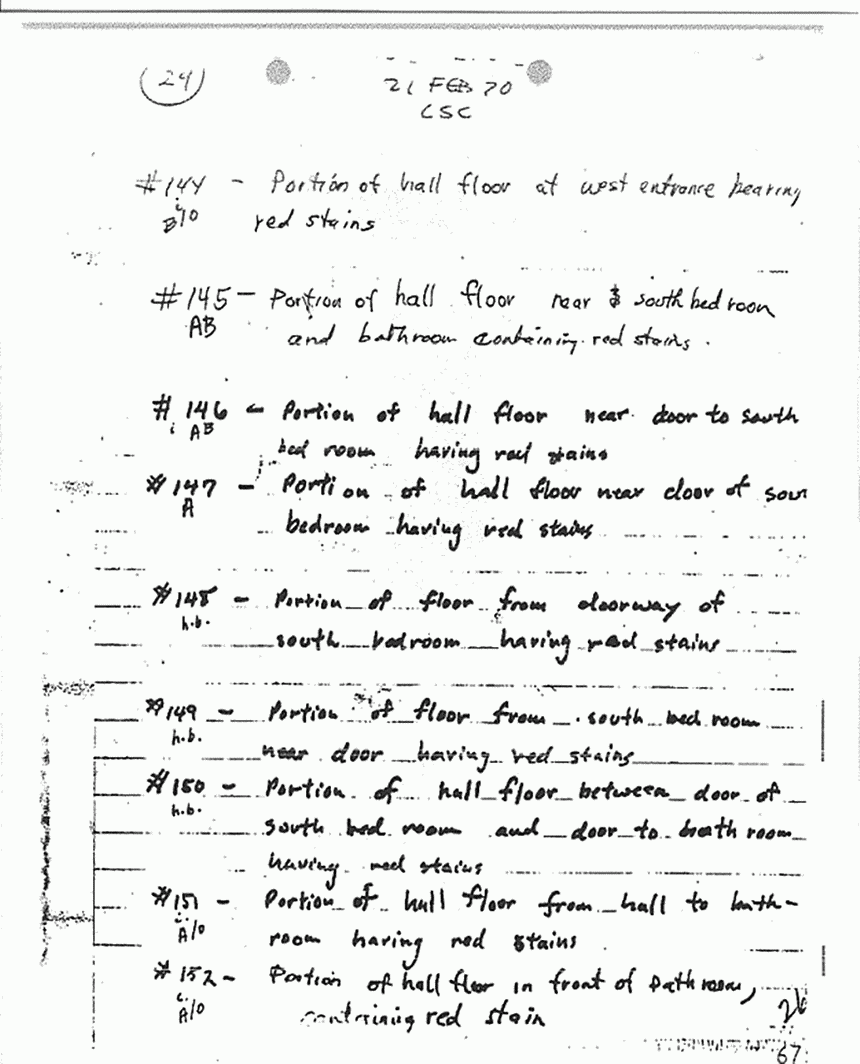 24
21 FEB 70
CSC
#144 - Portion of hall floor at west entrance bearing
B/O red stains
#145 - Portion of hall floor near south bed room
AB and bathroom containing red stains.
# 146 - Portion of hall floor near door to south
AB bed room having red stains
#147 - Portion of hall floor near door of sou
A bedroom having red stains
#148 - Portion of floor from doorway of
h.b. south bedroom having red stains
#149 - Portion of floor from south bed room
h.b. near door having red stains
#150 - Portion of hall floor between door of
h.b. south bed room and door to bath room
having red stains
#151 - Portion of hall floor from hall to bath-
A/O room having red stains
#152 - Portion of hall floor in front of bathroom,
A/O containing red stain
67